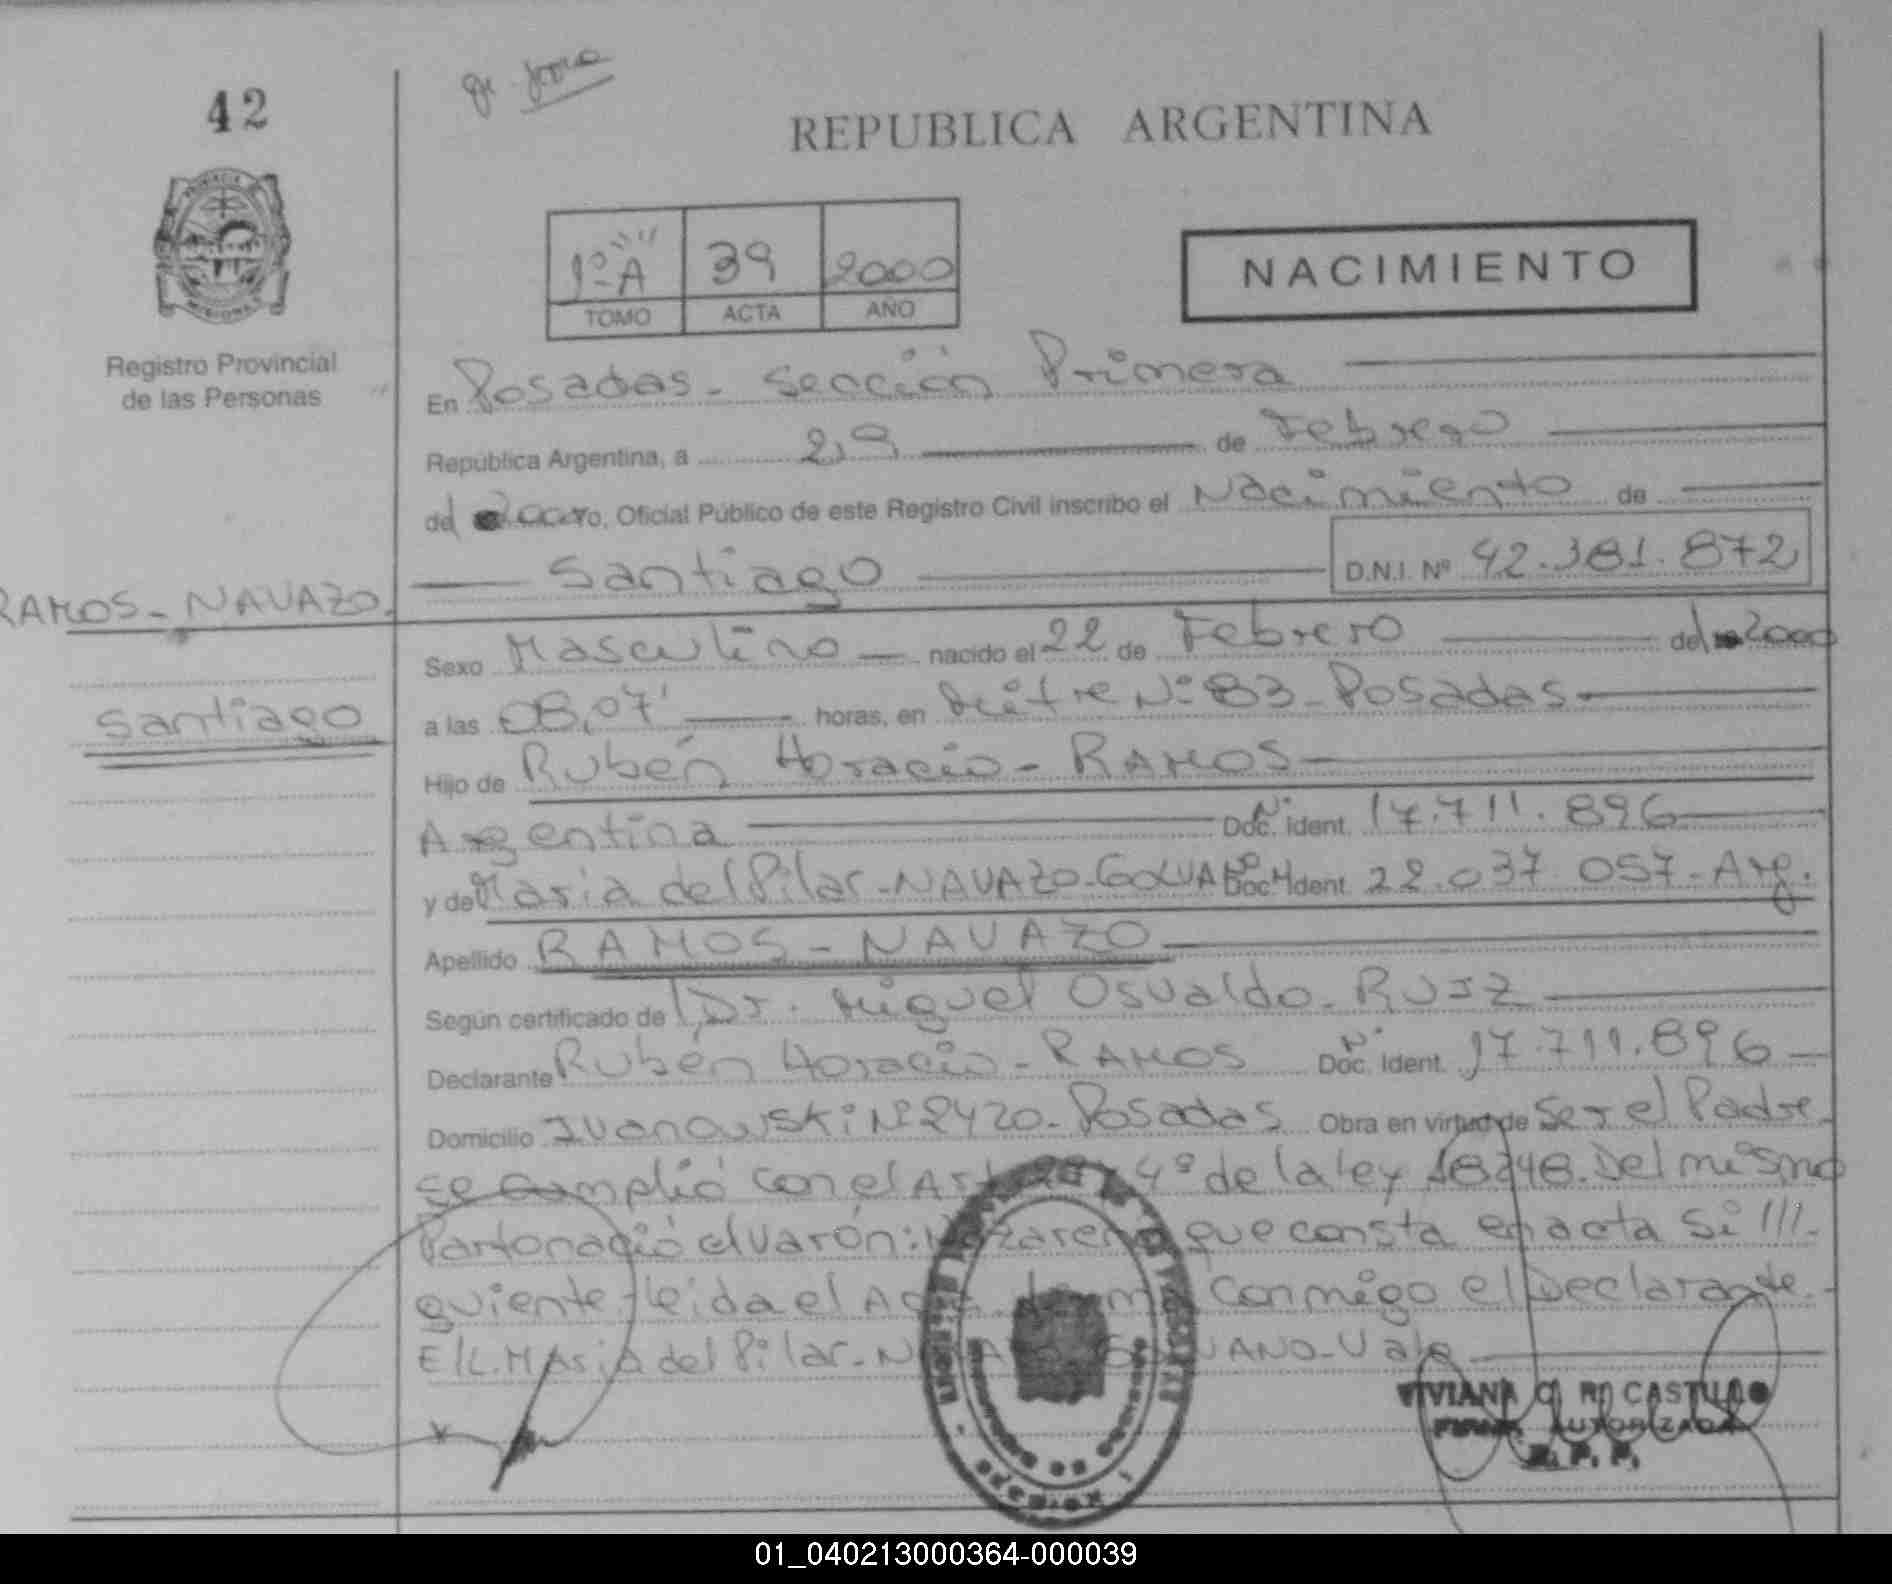 42
REPUBLICA ARGENTINA
1º "A" 39 2000
TOMO ACTA AÑO
NACIMIENTO
Registro Provincial
de las Personas
En Posadas - Sección Primera
República Argentina, a 29 de Febrero
del 2000 yo, Oficial Público de este Registro Civil inscribo el Nacimiento de
Santiago D.N.I. Nº 42.381.872
RAMOS - NAVAZO.
Santiago
Sexo Masculino nacido el 22 de Febrero del 2000
a las 08,07' horas, en Mitre Nº 83 - Posadas
Hijo de Rubén Horacio - RAMOS
Argentina Doc. Nº Ident. 17.711.896
y de María del Pilar - NAVAZO - Doc. Nº Ident. 22.037.057 - Arg.
Apellido RAMOS - NAVAZO
Según certificado de Dr. Miguel Osvaldo - RUIZ
Declarante Rubén Horacio - RAMOS Doc. Nº Ident. 17.711.896
Domicilio Ivanowski Nº 2420 - Posadas Obra en virtud de Ser el Padre.
Se cumplió con el Art. 4º de la ley 18248. Del mismo
Parto nació el varón: que consta en acta Si
guiente. Leida el Acta conmigo el Declarante.
E/L. María del Pilar - Vale
VIVIANA C. R. CASTILLO
FIRMA AUTORIZADA
R. P. P.
01_040213000364-000039